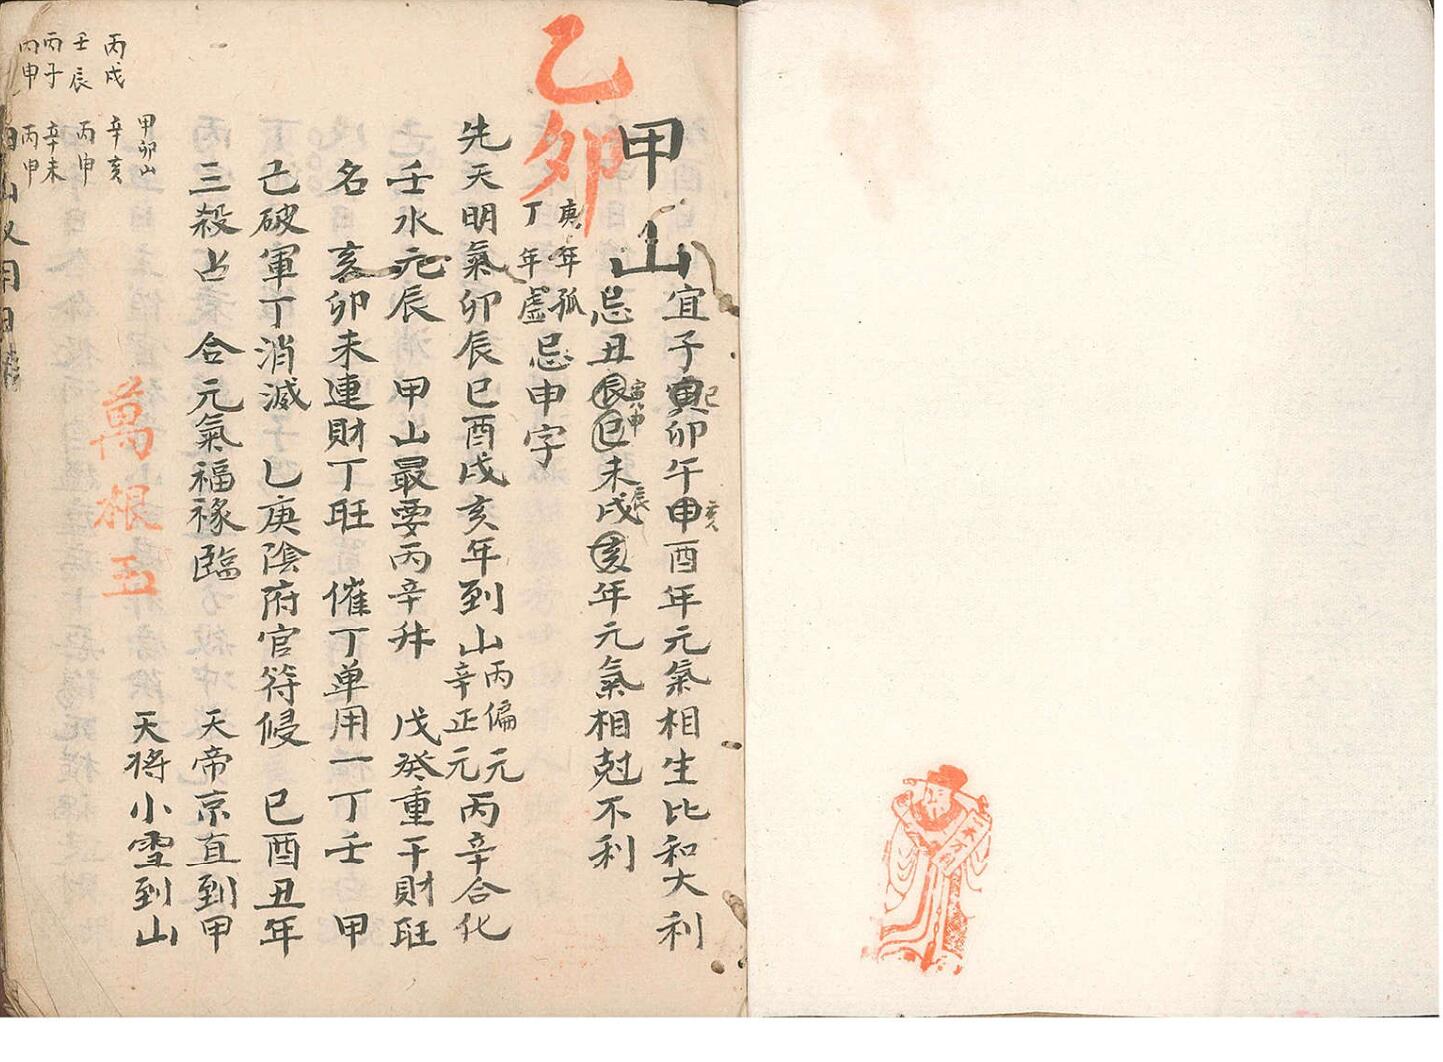 乙卯
甲山
宜子寅卯午申酉年元氣相生比和大利
巳
亥
忌丑辰巳未戌亥年元氣相尅不利
寅申
辰
庚年孤
丁年虛
忌申字
先天明氣卯辰巳酉戌亥年到山
丙偏元
辛正元
丙辛合化
壬水元辰 甲山最要丙辛升 戊癸重干財旺
名 亥卯未連財丁旺 催丁单用一丁壬 甲
己破軍丁消滅 乚庚陰府官符侵 巳酉丑年
三殺占 合元氣福祿臨 天帝京直到甲
天將小雪到山
萬根玉
甲卯山
丙戌 辛亥
壬辰 丙申
丙子 辛未
丙申 丙申